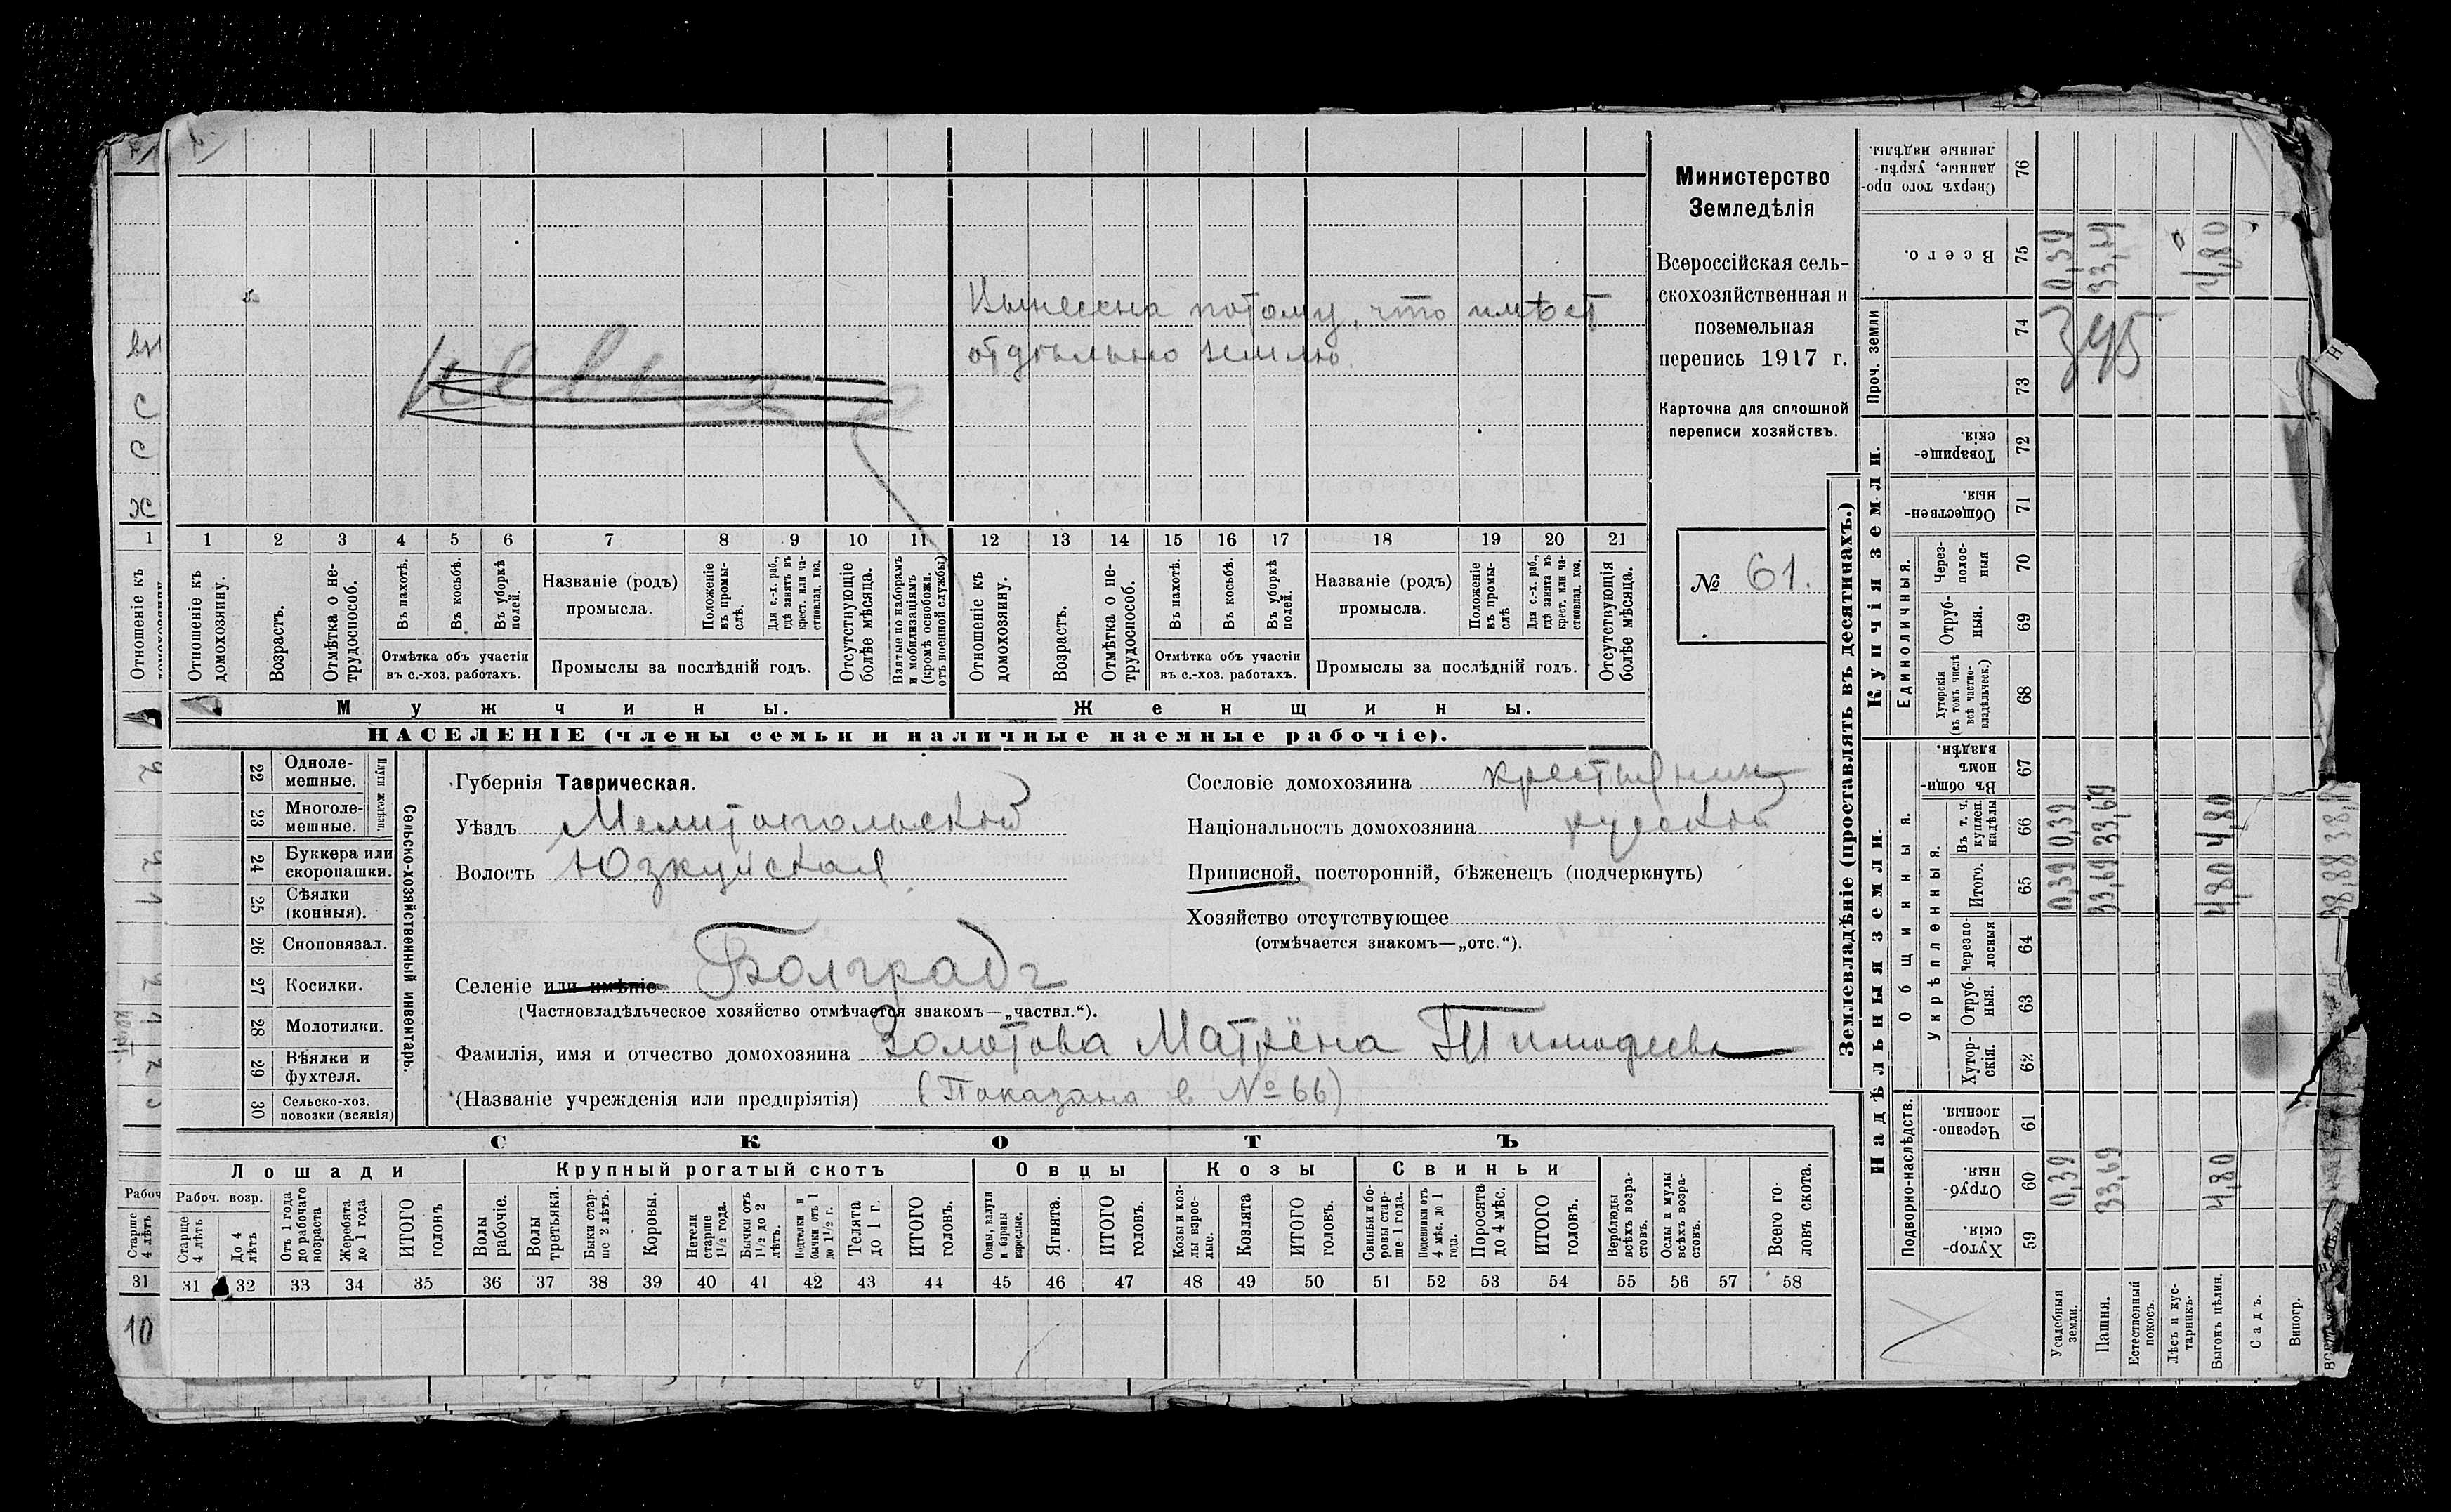 Министерство
Земледѣлія
Всероссійская сель-
скохозяйственная и
поземельная
перепись 1917 г.
Карточка для сплошной
переписи хозяйствъ.
№ 61.
Вынесена потому, что имѣет
отдѣльно землю.
1 2 3 4 5 6 7 8 9 10 11 12 13 14 15 16 17 18 19 20 21
Отношеніе къ домохозяину.
Возрастъ.
Отмѣтка о не-трудоспособ.
Въ пахотѣ.
Въ косьбѣ.
Въ уборкѣ полей.
Отмѣтка объ участіи
въ с.-хоз. работахъ.
Названіе (родъ)
промысла.
Положеніе въ промы-слѣ.
Для с.-х. раб., гдѣ занятъ въ крест. или ча-стновлад. хоз.
Промыслы за послѣдній годъ.
Отсутствующіе болѣе мѣсяца.
Взятые по наборамъ и мобилизаціямъ (кромѣ освобожд. отъ военной службы)
Отношеніе къ домохозяину.
Возрастъ.
Отмѣтка о не-трудоспособ.
Въ пахотѣ.
Въ косьбѣ.
Въ уборкѣ полей.
Отмѣтка объ участіи
въ с.-хоз. работахъ.
Названіе (родъ)
промысла.
Положеніе въ промы-слѣ
Для с.-х. раб., гдѣ занята въ крест. или ча-стновлад. хоз.
Промыслы за послѣдній годъ.
Отсутствующія болѣе мѣсяца.
Мужчины.
Женщины.
НАСЕЛЕНІЕ (члены семьи и наличные наемные рабочіе).
22 Одноле-мешные.
23 Многоле-мешные.
Плуги желѣзн.
24 Буккера или скоропашки.
25 Сѣялки (конныя).
26 Сноповязал.
27 Косилки.
28 Молотилки.
29 Вѣялки и фухтеля.
30 Сельско-хоз. повозки (всякія)
Сельско-хозяйственный инвентарь.
Губернія Таврическая.
Уѣздъ Мелитопольской
Волость Юзкуйская
Селеніе или имѣніе Болградъ
(Частновладѣльческое хозяйство отмѣчается знакомъ—„частвл.“).
Фамилія, имя и отчество домохозяина Золотова Матрёна Тимофеева
(Названіе учрежденія или предпріятія) (Показана в № 66)
Сословіе домохозяина крестьянин
Національность домохозяина русской
Приписной, посторонній, бѣженецъ (подчеркнуть)
Хозяйство отсутствующее
(отмѣчается знакомъ—„отс.“).
СКОТЪ
Лошади
Крупный рогатый скотъ
Овцы
Козы
Свиньи
Рабоч. возр.
Старше 4 лѣтъ
До 4 лѣтъ
Отъ 1 года до рабочаго возраста
Жеребята до 1 года
ИТОГО головъ
Волы рабочіе.
Волы третьяки.
Быки стар-ше 2 лѣтъ.
Коровы.
Нетели старше 1½ года.
Бычки отъ 1½ до 2 лѣтъ.
Подтелки и бычки отъ 1 до 1½ г.
Телята до 1 г.
ИТОГО головъ.
Овцы, валухи и бараны взрослые.
Ягнята.
ИТОГО головъ.
Козы и коз-лы взрос-лые.
Козлята
ИТОГО головъ.
Свиньи и бо-ровы стар-ше 1 года.
Подсвинки отъ 4 мѣс. до 1 года.
Поросята до 4 мѣс.
ИТОГО головъ.
Верблюды всѣхъ возра-стовъ.
Ослы и мулы всѣхъ возра-стовъ.
Всего го-ловъ скота.
31 32 33 34 35 36 37 38 39 40 41 42 43 44 45 46 47 48 49 50 51 52 53 54 55 56 57 58
Землевладѣніе (проставлять въ десятинахъ.)
Надѣльныя земли.
Купчія земли.
Проч. земли
Подворно-наслѣдств.
Общинныя.
Укрѣпленныя.
Единоличныя.
Хутор-скія. 59
Отруб-ныя. 60
Черезпо-лосныя. 61
Хутор-скія. 62
Отруб-ныя. 63
Черезпо-лосныя 64
Итого. 65
Въ т. ч. куплен. надѣлы 66
Въ общи-номъ владѣн. 67
Хуторскія (въ томъ числѣ всѣ частно-владѣльческ.) 68
Отруб-ныя. 69
Через-полос-ныя 70
Обществен-ныя. 71
Товарище-скія. 72
73
74
Всего. 75
Сверхъ того про-данные, укрѣп-ленные надѣлы. 76
Усадебныя земли. 0,39 0,39 0,39 0,39
Пашня. 33,69 33,69 33,69
Естественный покосъ.
Лѣсъ и кус-тарникъ.
Выгонъ цѣлин. 4,80 4,80 4,80 4,80
Садъ.
Виногр.
38,88 38,
395
Отношеніе къ
1
Рабоч
Старше 4 лѣтъ
31
10